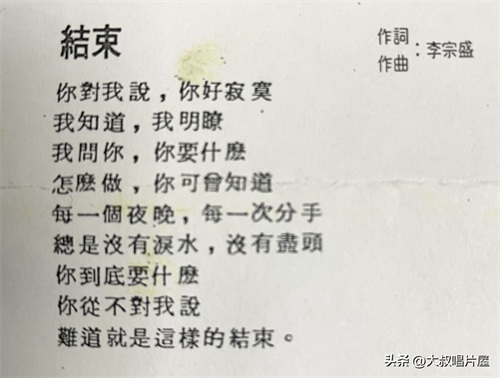 結束
作詞
作曲：李宗盛
你對我說，你好寂寞
我知道，我明瞭
我問你，你要什麼
怎麼做，你可曾知道
每一個夜晚，每一次分手
總是沒有淚水，沒有盡頭
你到底要什麼
你從不對我說
難道就是這樣的結束。
头条 @大叔唱片屋